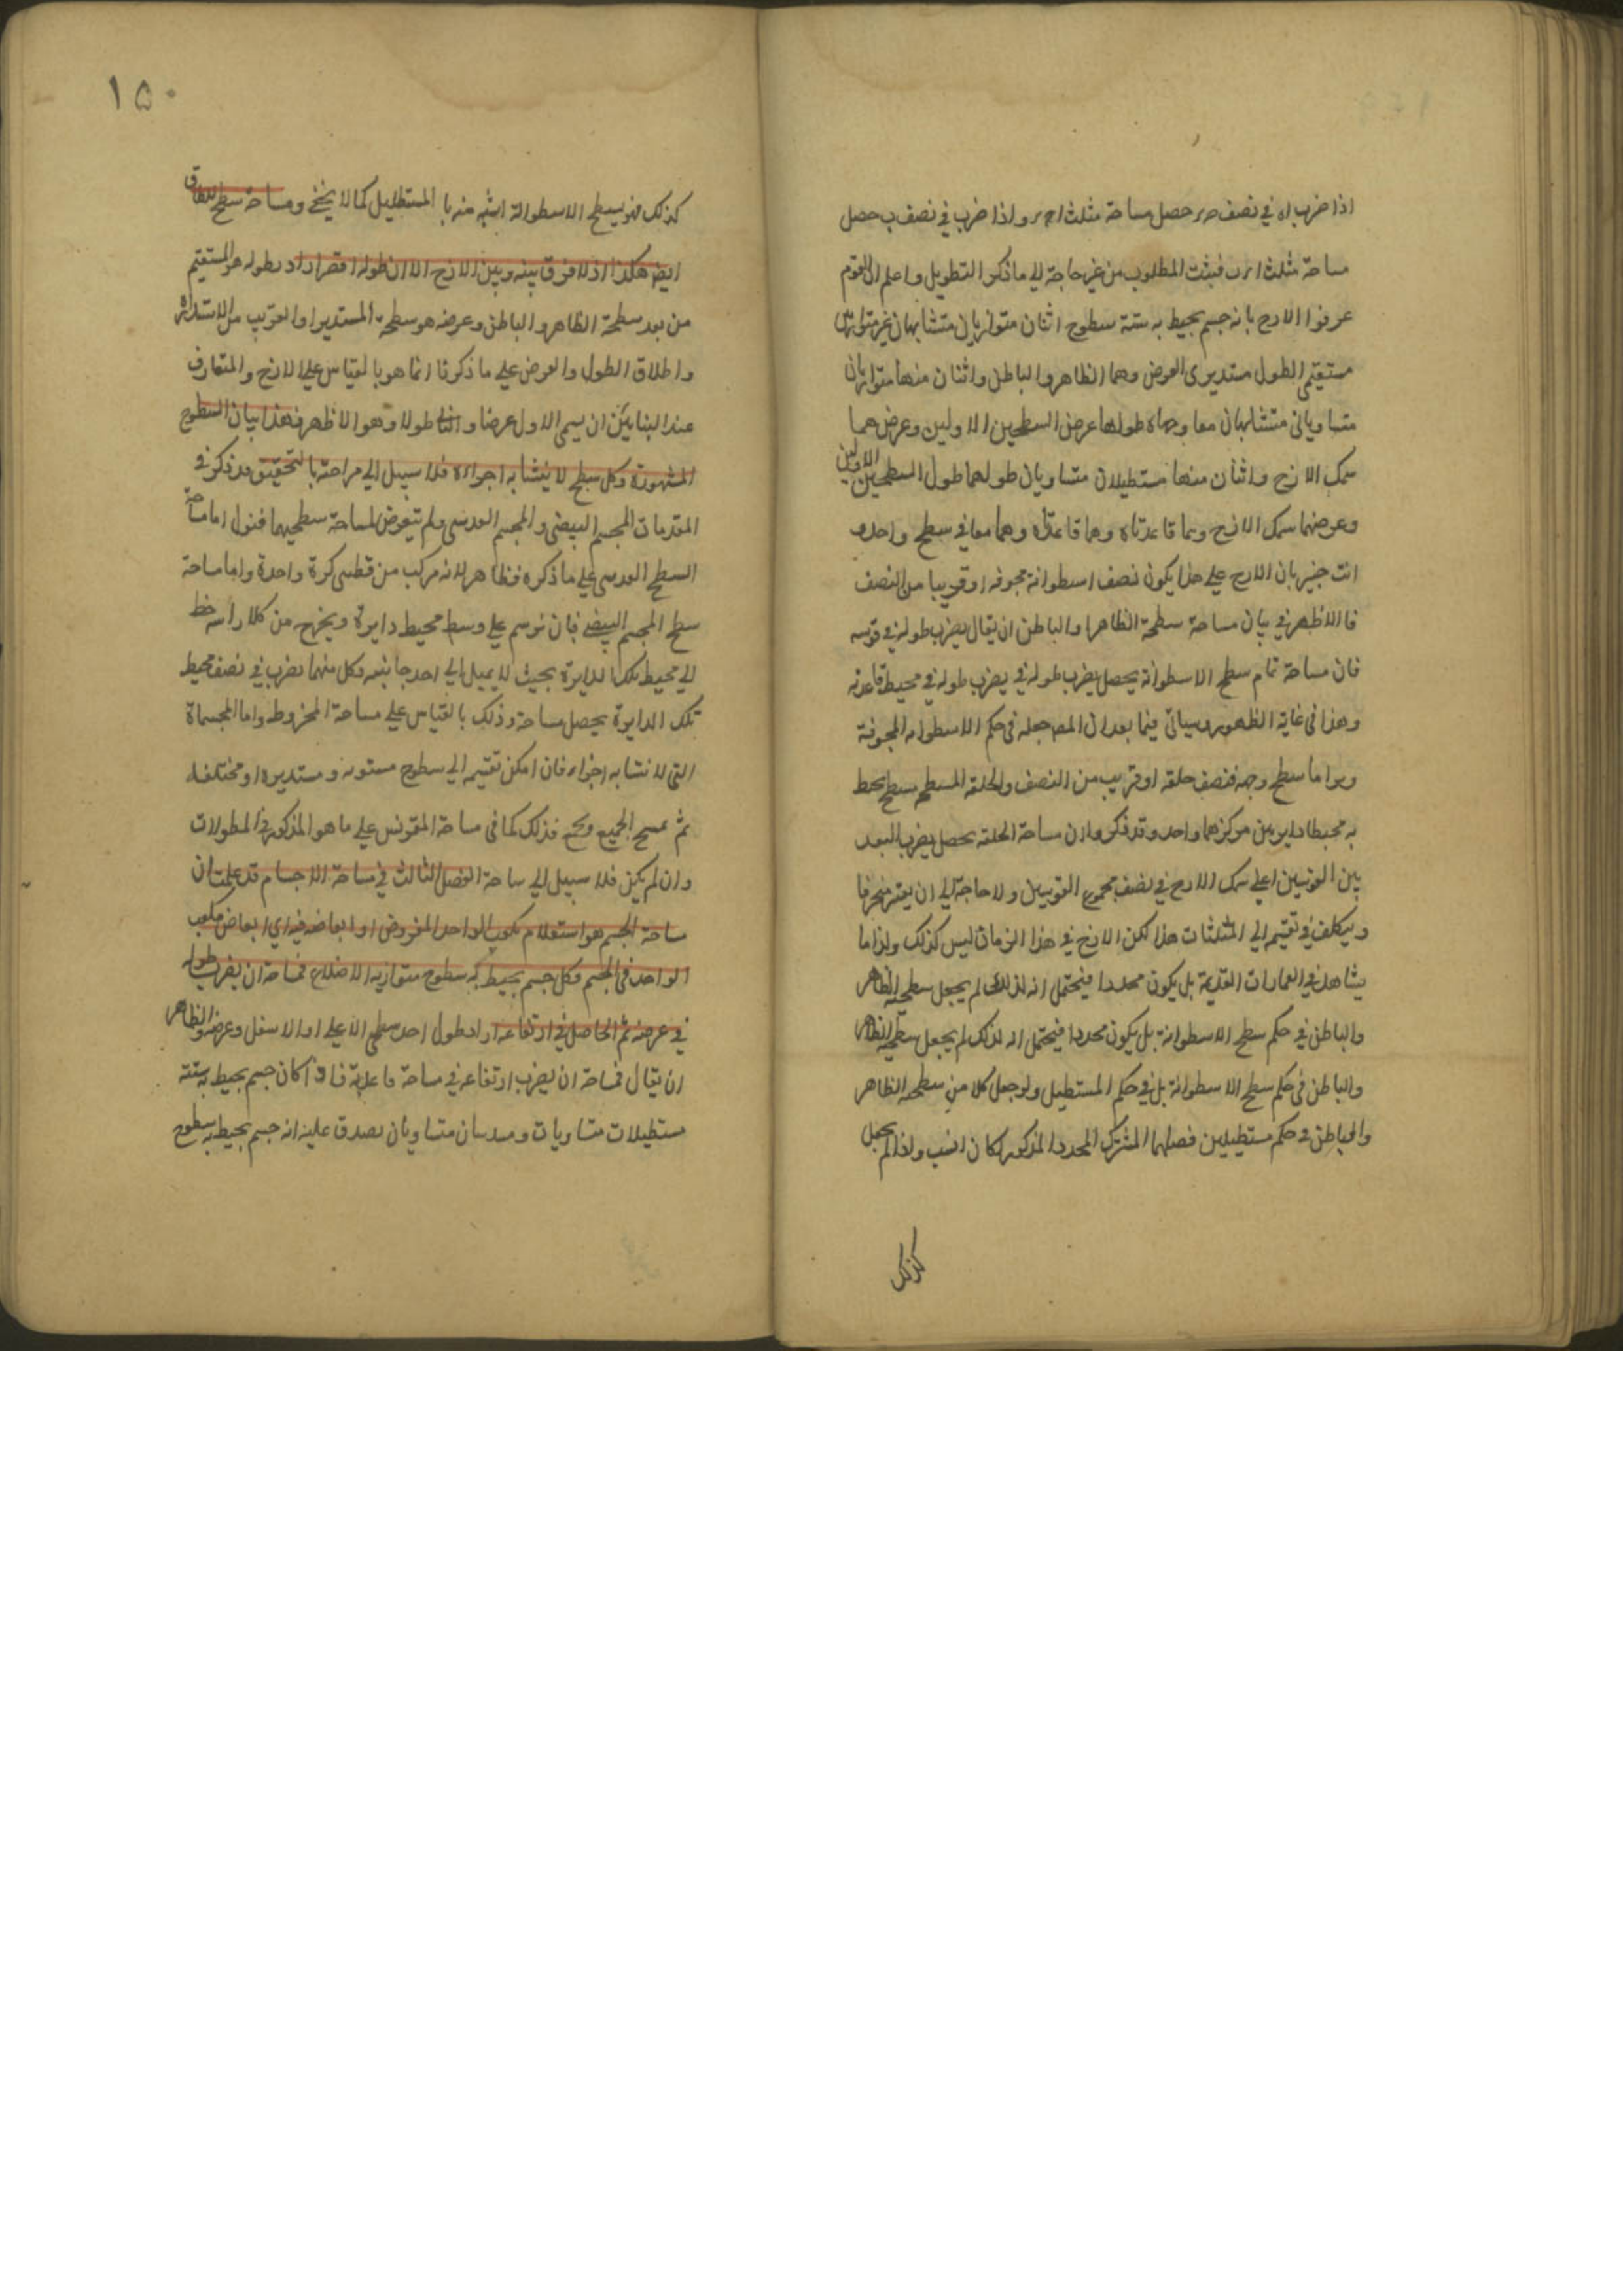 اذا ضرب اه في نصف ح ر حصل مساحة مثلث ا ح ر واذا ضرب في نصف ب حصل
مساحة مثلث ا ر ب فيثبت المطلوب من غير حاجة الى ما ذكر التطويل واعلم ان القوم
عرفوا الازج بانه جسم يحيط به ستة سطوح اثنان متوازيان متشابهان غير متساويين
مستقيمي الطول مستديرى العرض وهما الظاهر والباطن واثنان منها متوازيان
متساويان متشابهان معا وجهاه طولها عرض السطحين الاولين وعرض هما
سمك الازج واثنان منها مستطيلان متساويان طولهما طول السطحين الاولين
وعرضهما سمك الازج وهما قاعدتاه وهما معا في سطح واحد و
انت خبير بان الازج على هذا يكون نصف اسطوانة مجوفه او قريبا من النصف
فالاظهر في بيان مساحة سطحه الظاهر والباطن ان يقال يضرب طوله في قوسه
فان مساحة تمام سطح الاسطوانة يحصل يضرب طوله في يضرب طوله في محيط قاعدته
وهذا في غاية الظهور وسياتى فيما بعد ان المص جعله في حكم الاسطوانه المجوفة
واما سطح وجهه فنصف حلقه او قريب من النصف والحلقه المسطح سطح يحيط
به محيطا دايرتين مركزهما واحد وقد ذكروا ان مساحة الحلقة يحصل يضرب البعد
بين القوسين اعلى سمك الازج في نصف مجموع القوسين ولا حاجة الى ان يعتبر منحرفا
ويتكلف في تقسيم الى المثلثات هذا لكن الازج في هذا الزمان ليس كذلك ولذا ما
يشاهد في العمارات القديمة بل يكون محددا فيحتمل انه لذلك لم يجعل سطحيه الظاهر
والباطن في حكم سطح الاسطوانة بل يكون محددا فيحتمل انه لذلك لم يجعل سطحيه الظاهر
والباطن في حكم سطح الاسطوانة بل في حكم المستطيل ولو جعل كلا من سطحيه الظاهر
والباطن في حكم مستطيلين فصلهما المشترك المحدد المذكور لكان انسب ولذا لم يجعل
كذلك
١٥٠
كذلك فهو بسطح الاسطوانة اشبه منه با المستطيل كما لا يخفى ومساحة سطح الطاق
ايض هكذا اذ لا فرق بينه وبين الازج الا ان طوله اقصر اراد بطوله هو المستقيم
من بعد سطحه الظاهر والباطن وعرضه هو سطحه المستدير او القريب من الاستدارة
واطلاق الطول والعرض على ما ذكرنا انما هو با لقياس على الازج والمتعارف
عند البنايين ان يسمى الاول عرضا و الثاني طولا وهو الاظهر فهذا بيان السطوح
المشهورة وكل سطح لا يتشابه اجزاؤه فلا سبيل الى مساحته بالتحقيق قد ذكر في
المقدمات المجسم البيضي والمجسم العدسي ولم يتعرض لمساحة سطحيهما فنقول اما مساحة
السطح العدسي على ما ذكره فظاهر لانه مركب من قطعتى كرة واحدة واما مساحة
سطح المجسم البيضي فبان نرسم على وسط محيط دايرة ويخرج من كلا راسه خط
الى محيط تلك الدايرة بحيث لا يميل الى احد جانبيه وكل منهما يضرب في نصف محيط
تلك الدايرة يحصل مساحة وذلك بالقياس على مساحة المخروط واما المجسمات
التى لا تشابه اجزاء فان امكن تقسيم الى سطوح مستويه ومستديره او مختلفه
ثم يمسح الجميع ويجمع فذلك كما في مساحة المقرنس على ما هو المذكور في المطولات
وان لم يكن فلا سبيل الى مساحة الفصل الثالث في مساحة الاجسام قد علمت ان
مساحة الجسم هو استعلام مكعب الواحد المفروض او ابعاضه فيه اي ابعاض مكعب
الواحد في الجسم فكل جسم يحيط به سطوح متوازيه الاضلاع فمساحة ان يضرب طوله
في عرضه ثم الحاصل في ارتفاعه اراد بطول احد سطحى الاعلى او الاسفل وعرضه والظاهر
ان يقال فمساحة ان يضرب ارتفاعه في مساحة قاعدته فاذا كان جسم يحيط به ستة
مستطيلات متساويات ومسدسان متساويان يصدق عليه انه جسم يحيط به سطوح